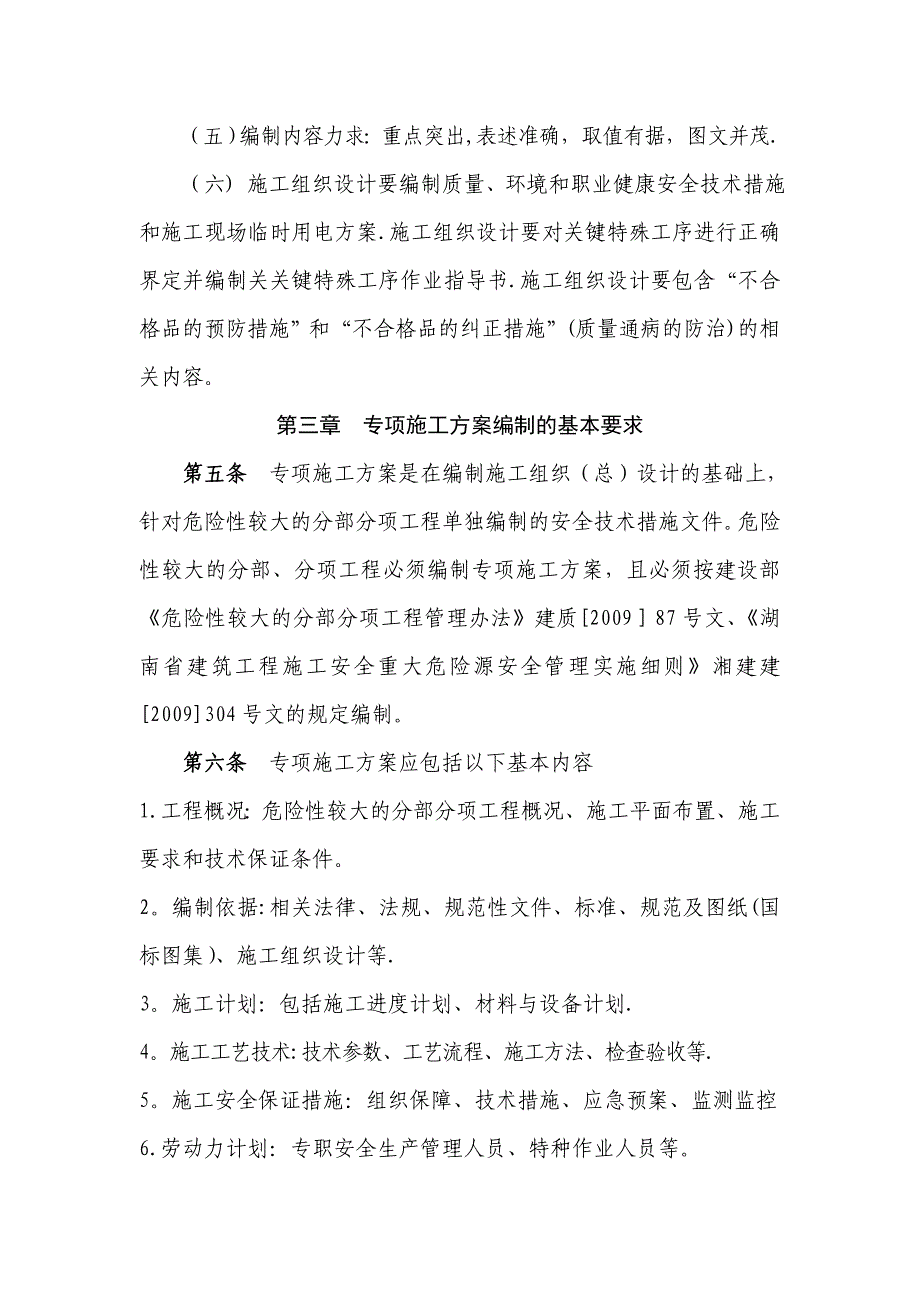 （五)编制内容力求: 重点突出,表述准确，取值有据，图文并茂.
（六) 施工组织设计要编制质量、环境和职业健康安全技术措施
和施工现场临时用电方案.施工组织设计要对关键特殊工序进行正确
界定并编制关关键特殊工序作业指导书.施工组织设计要包含“不合
格品的预防措施”和“不合格品的纠正措施”(质量通病的防治)的相
关内容。
第三章　专项施工方案编制的基本要求
第五条　专项施工方案是在编制施工组织（总）设计的基础上，
针对危险性较大的分部分项工程单独编制的安全技术措施文件。危险
性较大的分部、分项工程必须编制专项施工方案，且必须按建设部
《危险性较大的分部分项工程管理办法》建质[2009］87号文、《湖
南省建筑工程施工安全重大危险源安全管理实施细则》湘建建
[2009]304号文的规定编制。
第六条　专项施工方案应包括以下基本内容
1.工程概况: 危险性较大的分部分项工程概况、施工平面布置、施工
要求和技术保证条件。
2。编制依据:相关法律、法规、规范性文件、标准、规范及图纸(国
标图集)、施工组织设计等.
3。施工计划: 包括施工进度计划、材料与设备计划.
4。施工工艺技术:技术参数、工艺流程、施工方法、检查验收等.
5。施工安全保证措施: 组织保障、技术措施、应急预案、监测监控
6.劳动力计划: 专职安全生产管理人员、特种作业人员等。